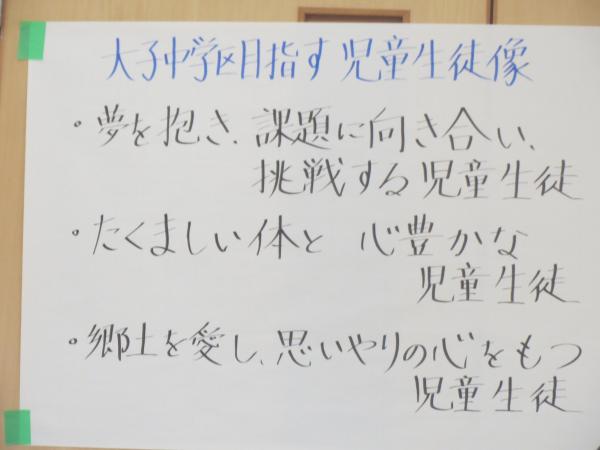 大子中学区目指す児童生徒像
・夢を抱き、課題に向き合い、
挑戦する児童生徒
・たくましい体と 心豊かな
児童生徒
・郷土を愛し、思いやりの心をもつ
児童生徒